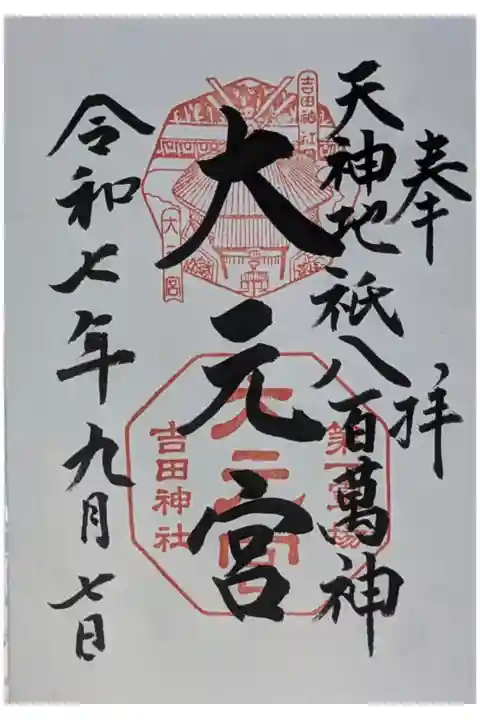 奉拝
天神地祇八百萬神
大元宮
令和七年九月七日
吉田神社
大元宮
大元宮
吉田神社